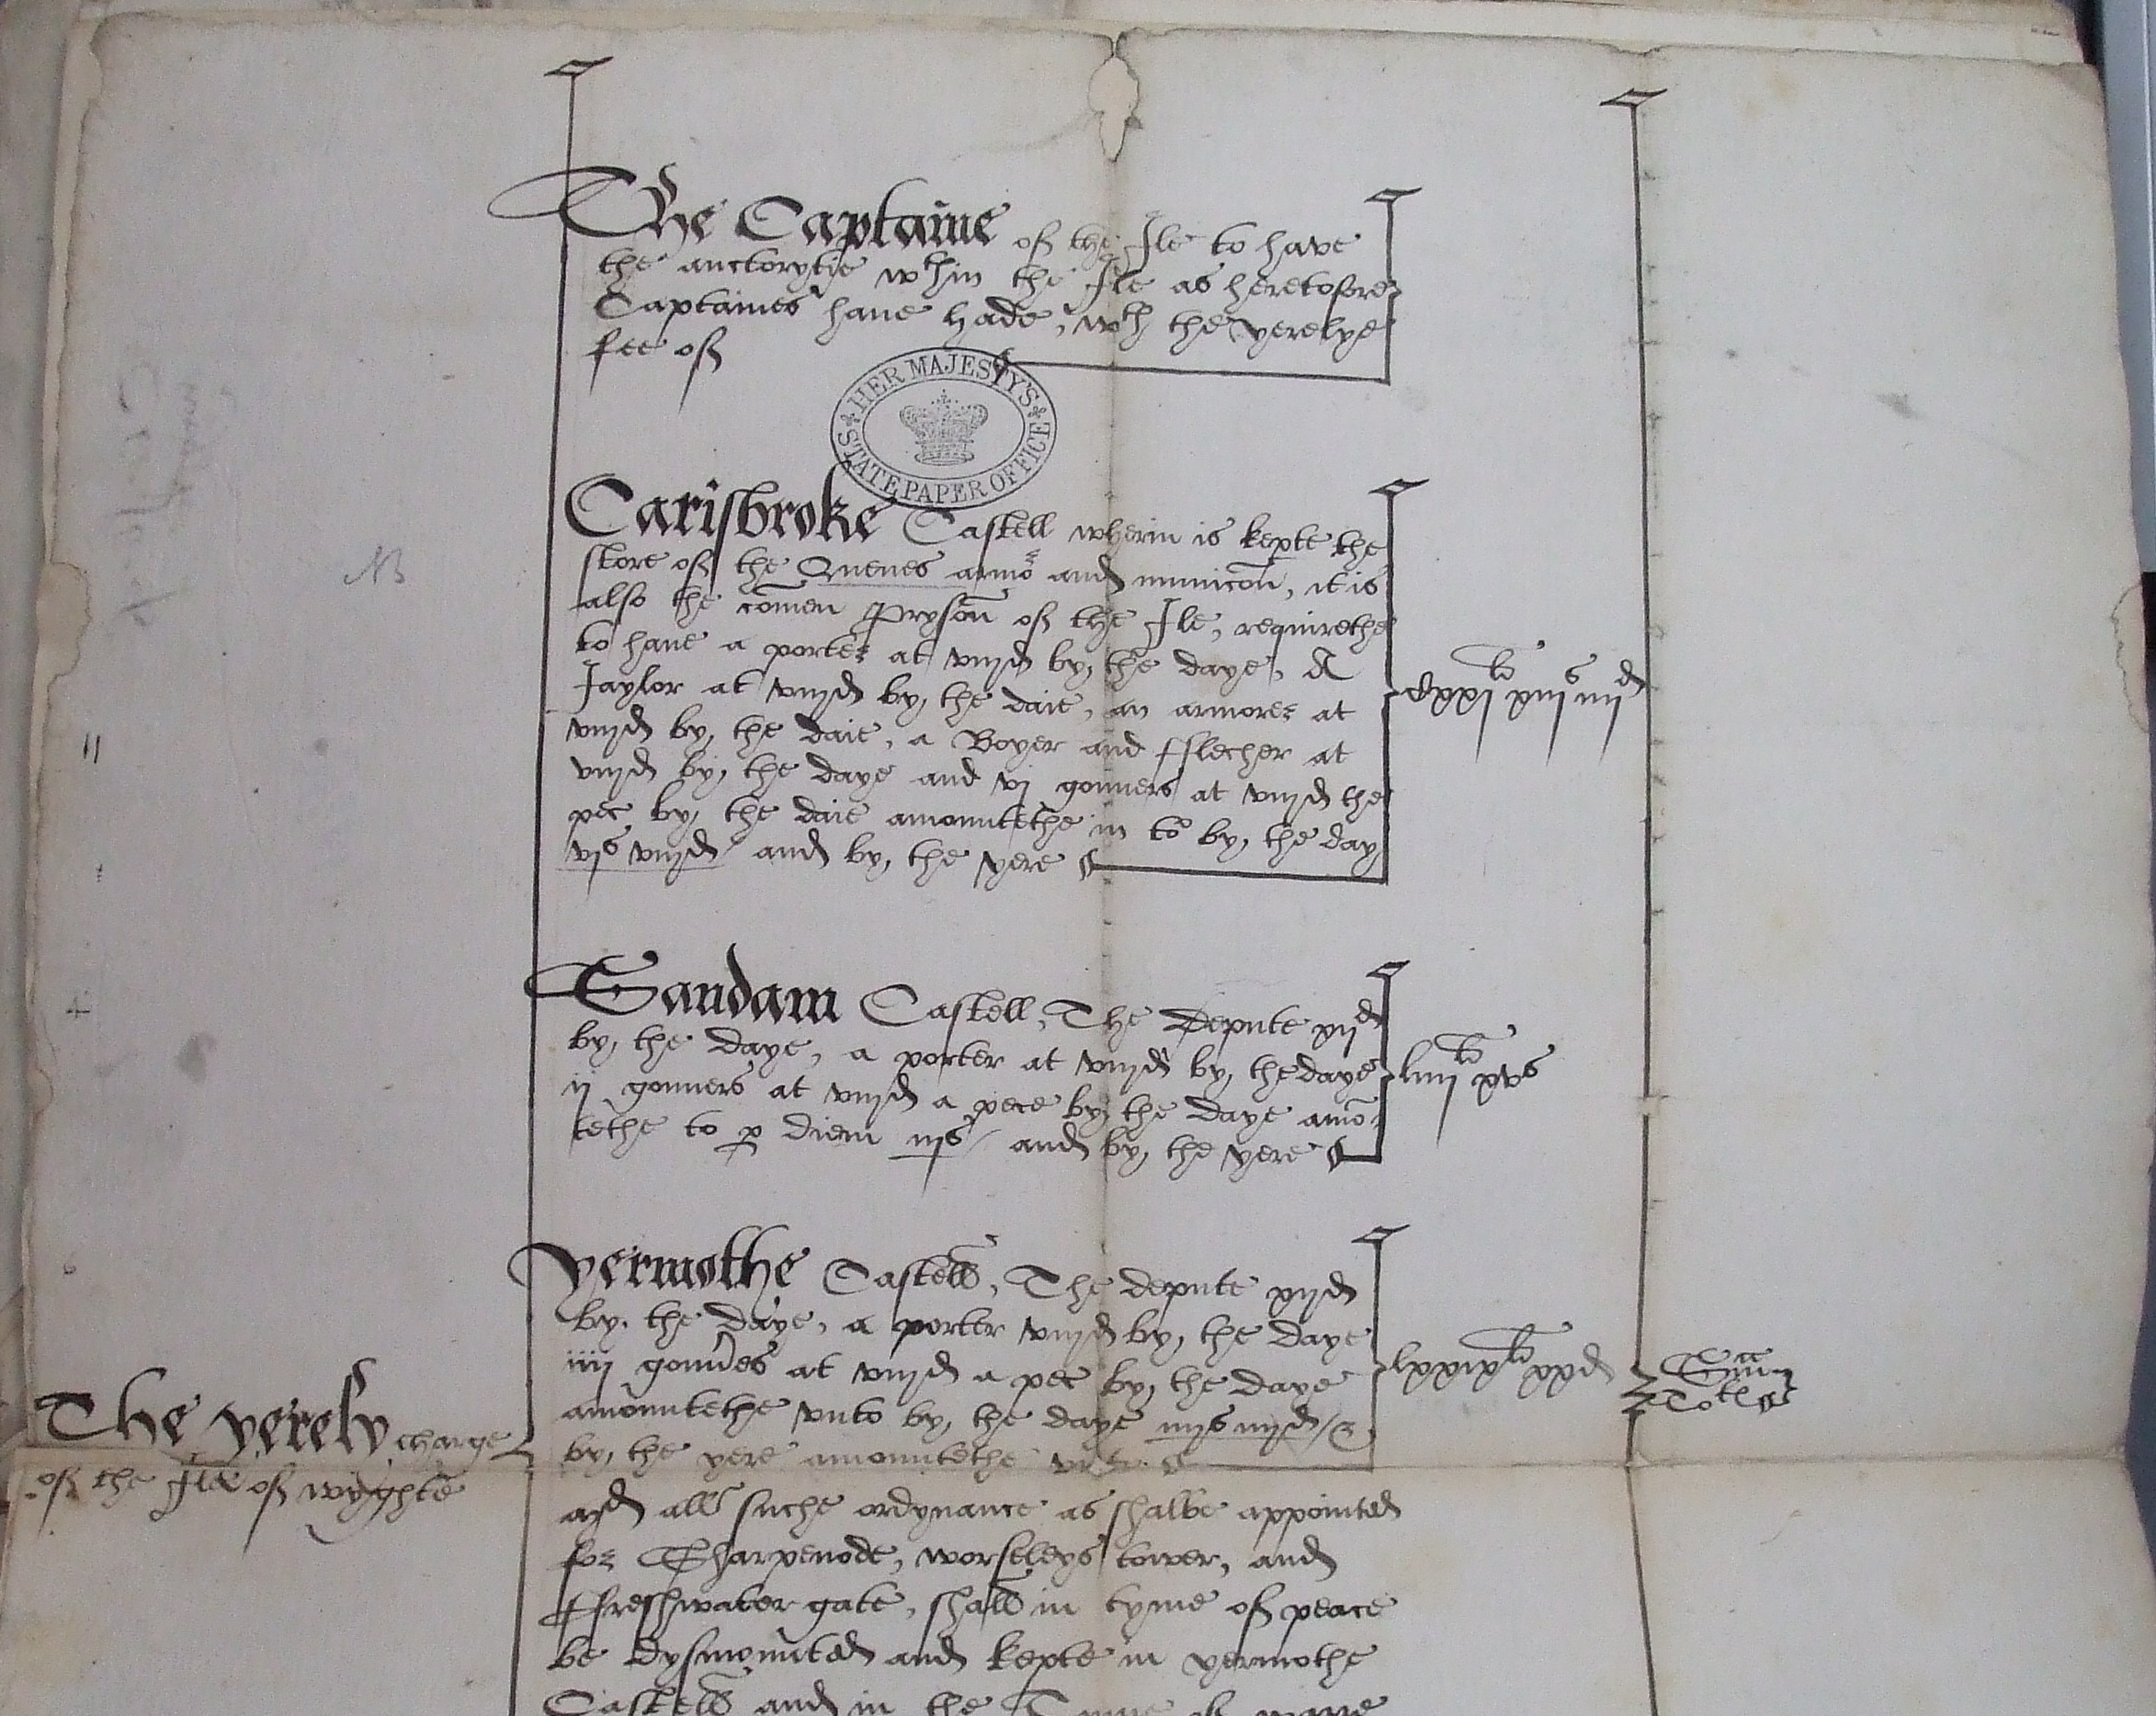 The Captaine of the Ile to have
the auctorytie wthin the Ile as heretofore
Captaines haue hade, wth the yerelye
fee of
HER MAJESTY'S
STATE PAPER OFFICE
Carisbroke Castell wherin is kepte the
store of the Quenes armor and municon, it is
also the comen Pryson of the Ile, requirethe
to haue a porter at viijd by the daye, A
Jaylor at viijd by the daie, an armorer at
viijd by the daie, a Boyer and fflecher at
viijd by the daye and vj gonners at viijd the
pec by the daie amountethe in to by the day
vjs viijd and by the yere
Cxxjli xiijs iiijd
NB
Sandam Castell, The depute xijd
by the daye, a porter at viijd by the daye
ij gonners at viijd a pece by the daye amo
tethe to p diem iijs and by the yere
liiijli xvs
yermothe Castell, The depute xijd
by the daye, a porter viijd by the daye
iiij gonnes at viijd a pec by the daye
amountethe vnto by the daye iiijs iiijd /&
by the yere amountethe
lxxixli xxd
The yerely charge
of the Ile of wyghte
Sm
Totles
and all suche ordynance as shalbe appointed
for Sharpenode, worseleys tower, and
ffreshwater gate, shall in tyme of peace
be dysmounted and kepte in yermothe
Castell and in the Tyme of